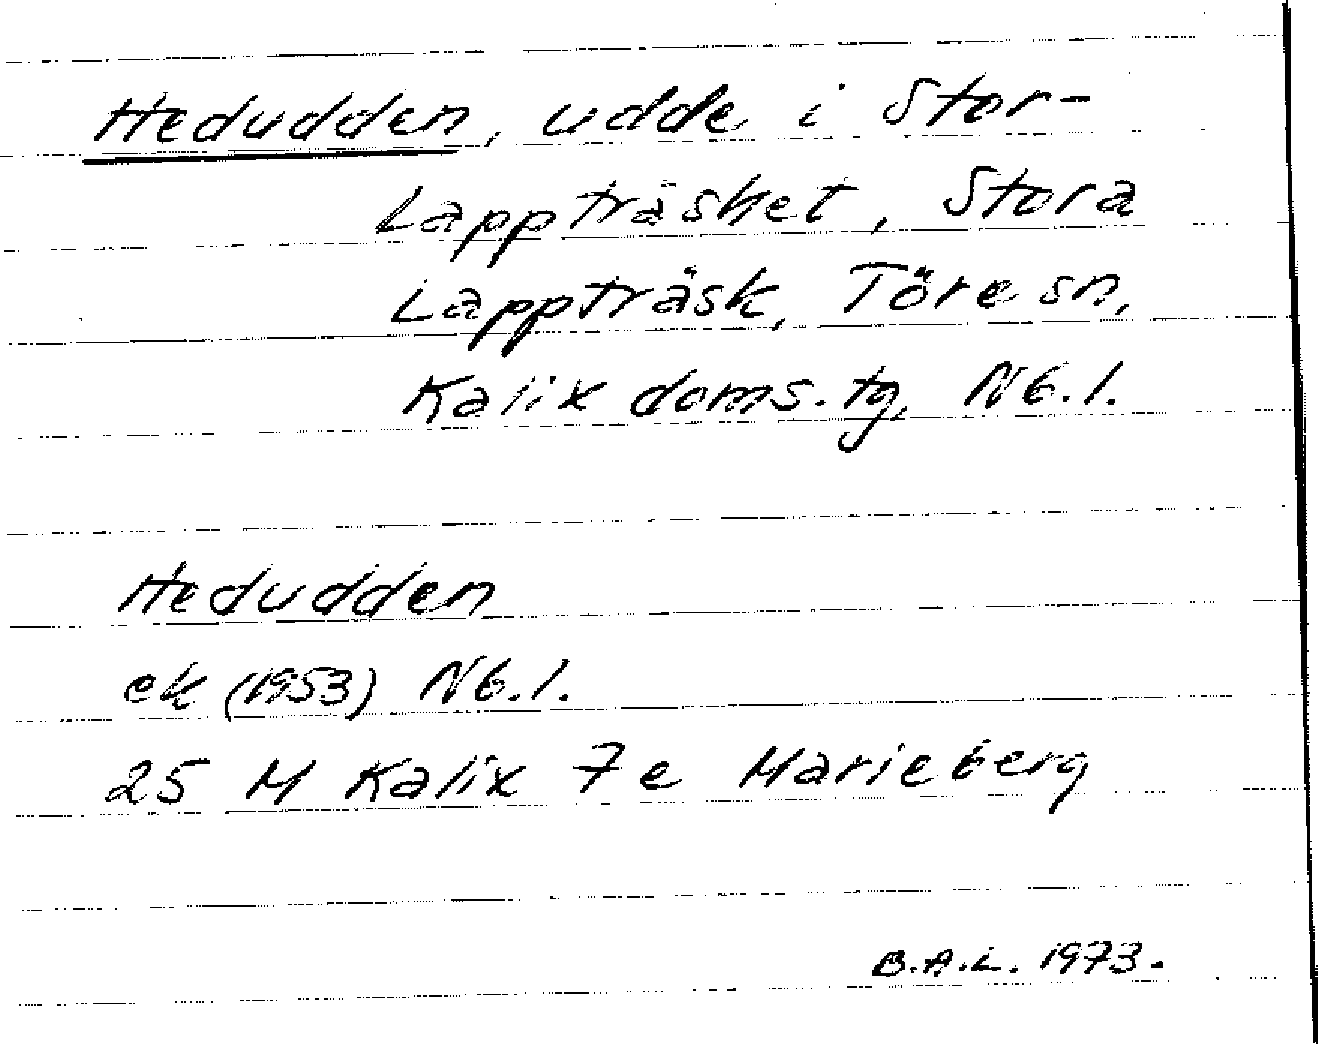 Hedudden, udde i Stor-
Lappträsket, Stora
Lappträsk, Töre sn,
Kalix doms. tg, Nb. l.
Hedudden
ek (1953) Nb. l.
25 M Kalix 7 e Marieberg
B.A.L. 1973.